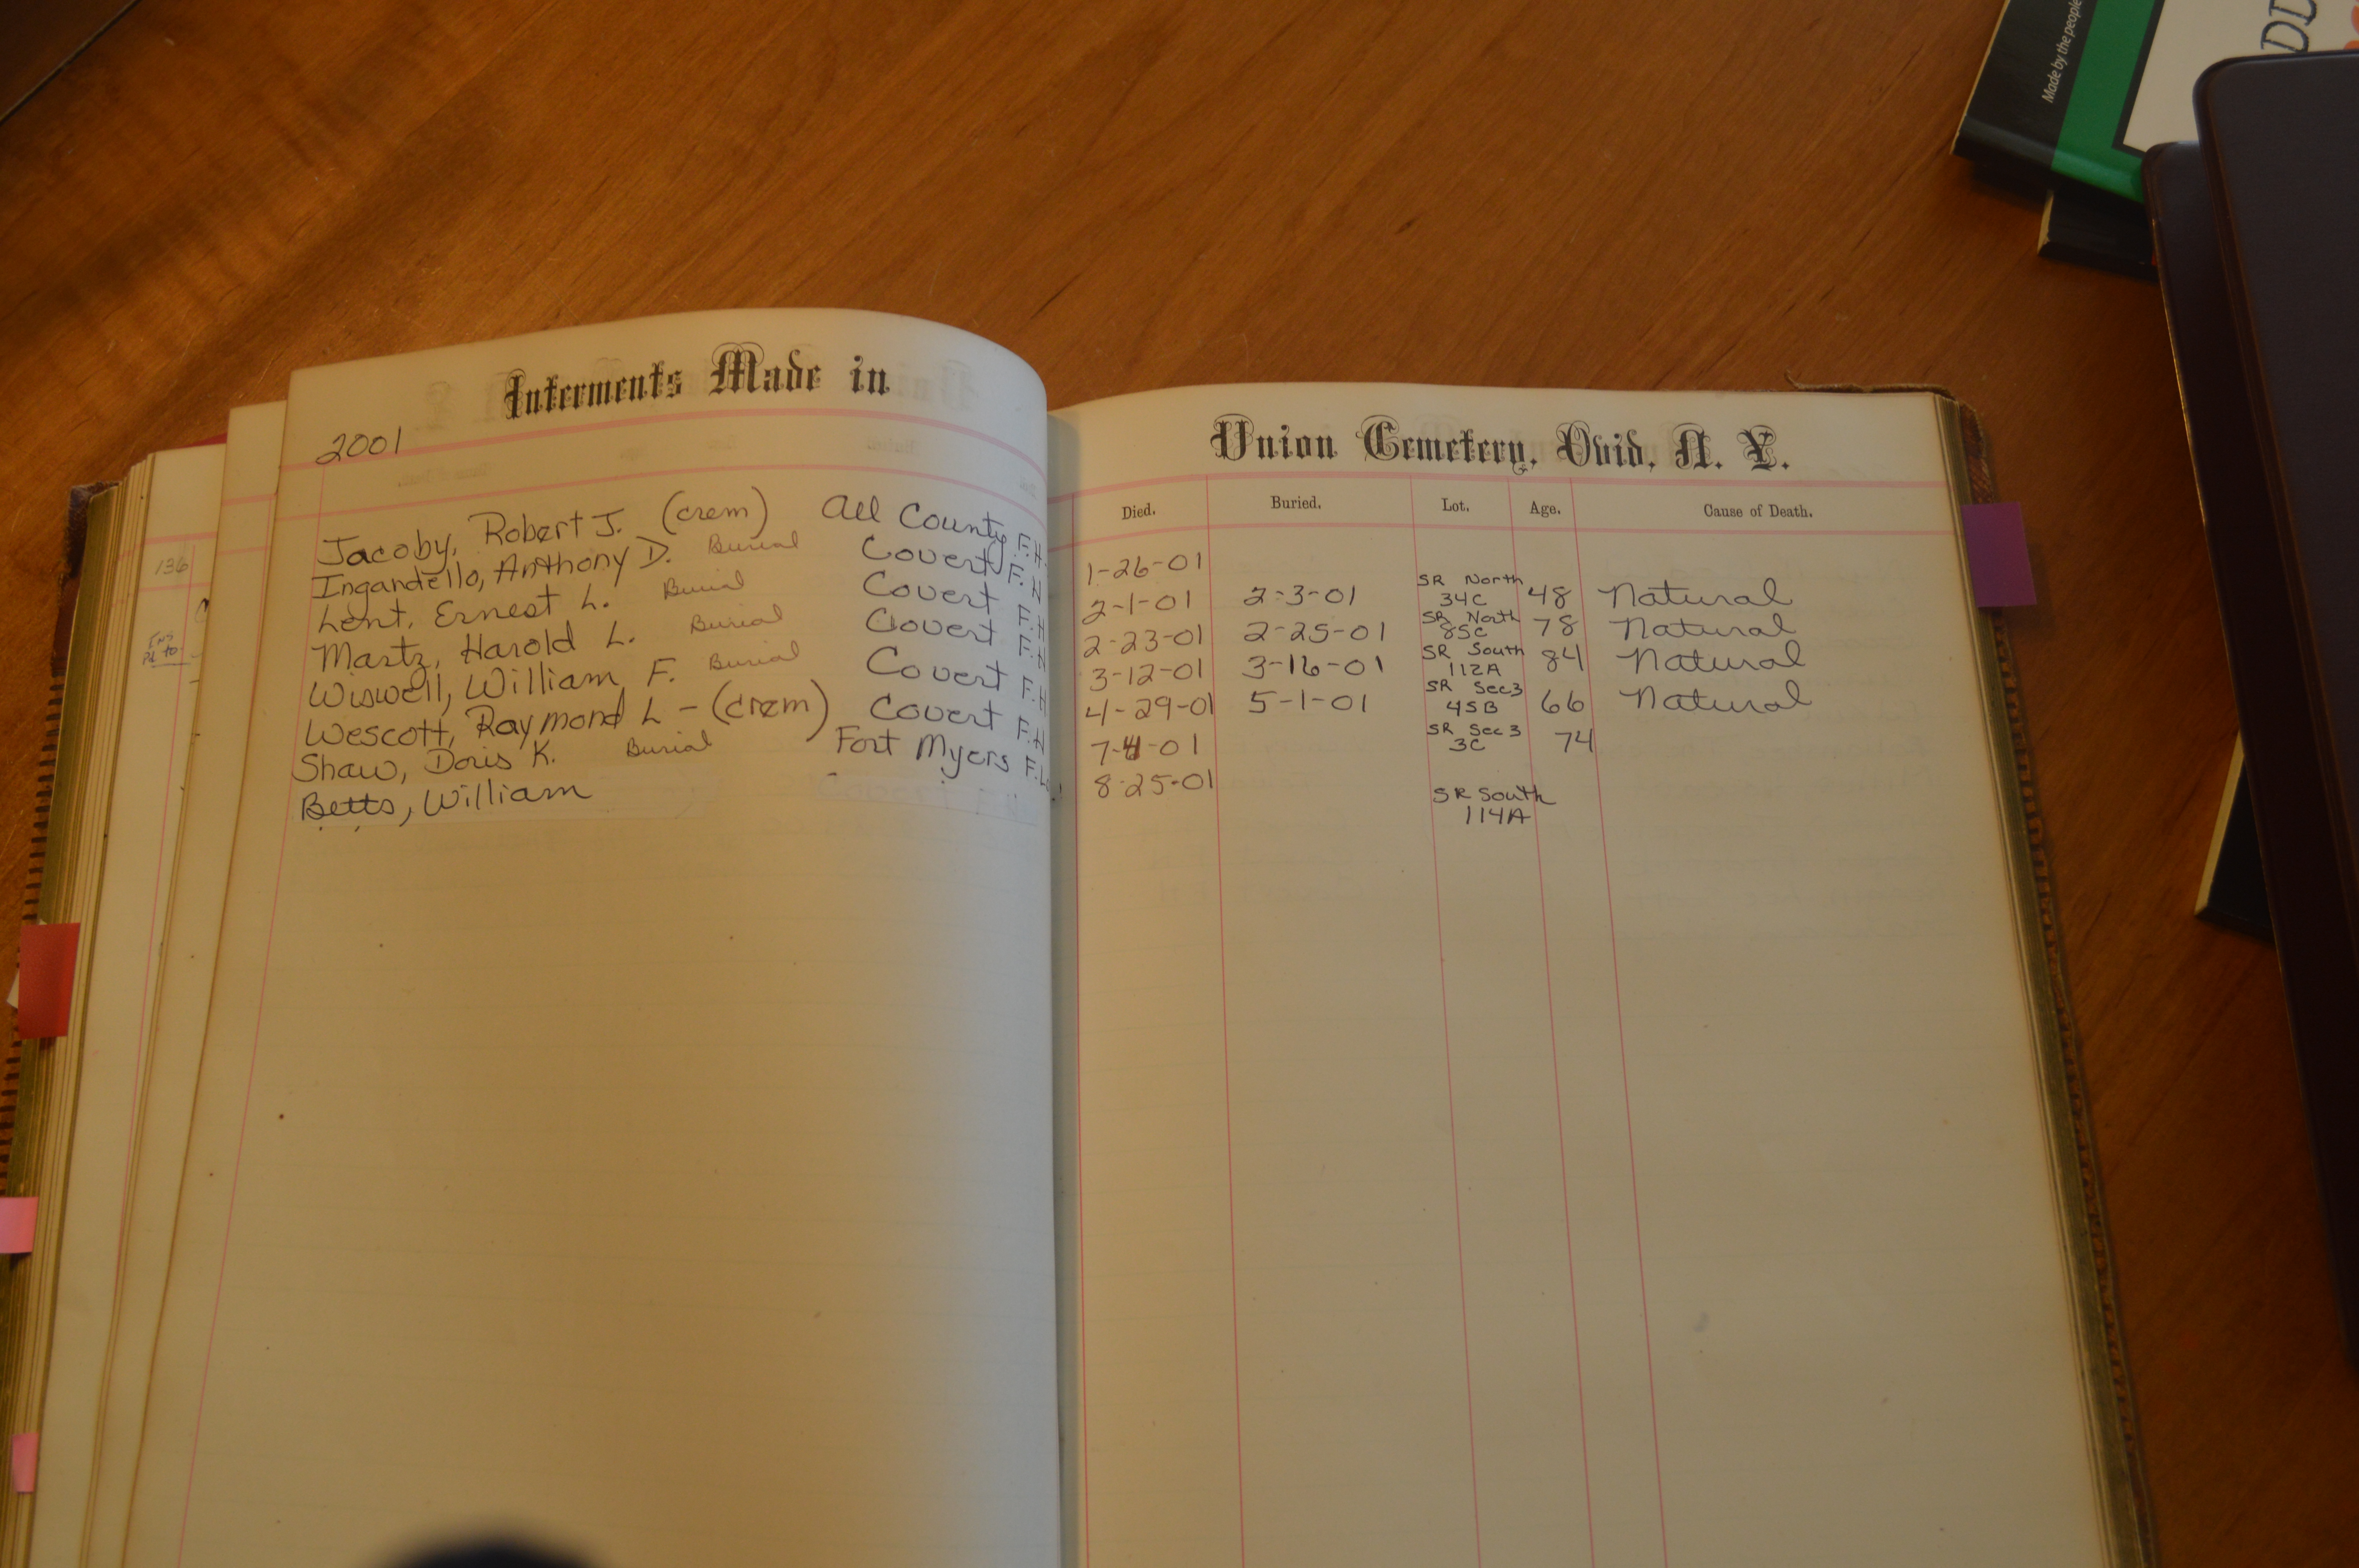 Interments Made in
2001
Jacoby, Robert J. (crem) All County F.H.
Ingardello, Anthony D. Burial Covert F.H
Lent, Ernest L. Burial Covert F.H
Martz, Harold L. Burial Covert F.H
Wiswell, William F. Burial Covert F.H
Wescott, Raymond L - (crem) Covert F.H
Shaw, Doris K. Burial Fort Myers
Betts, William
136
Union Cemetery, Ovid, N. Y.
Died. Buried. Lot. Age. Cause of Death.
1-26-01
2-1-01 2-3-01 SR North 34C 48 Natural
2-23-01 2-25-01 SR North 85C 78 Natural
3-12-01 3-16-01 SR South 112A 84 Natural
4-29-01 5-1-01 SR Sec3 45B 66 Natural
7-4-01 SR Sec 3 3C 74
8-25-01
SR South 114A
Made by the people